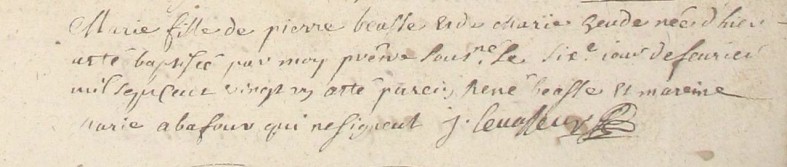 Marie fille de pierre beasse et de Marie zende née d'hier
a eté baptisée par moy prêtre sous.né le six.e iour de feurier
mil sept cent vingt un a eté parein René beasse et mareine
Marie abafour qui ne signent j. leuasseur